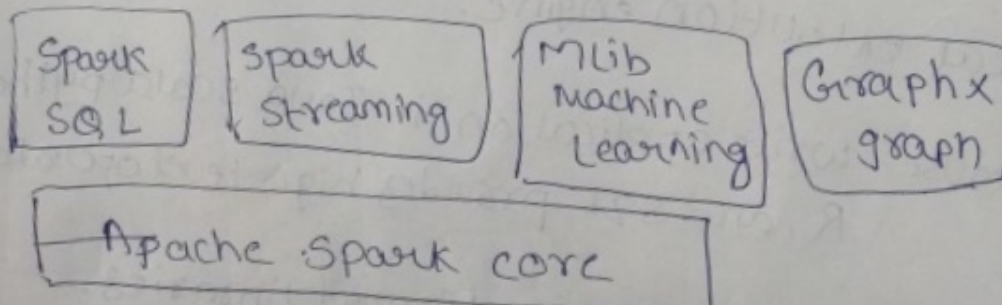 Spark
SQL
Spark
Streaming
MLib
Machine
Learning
Graphx
graph
Apache Spark core